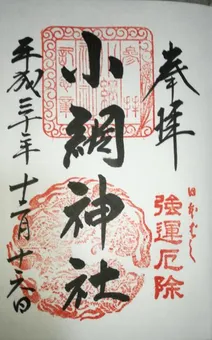 奉拝
日本ばし
強運厄除
小網神社
平成三十年十二月十六日